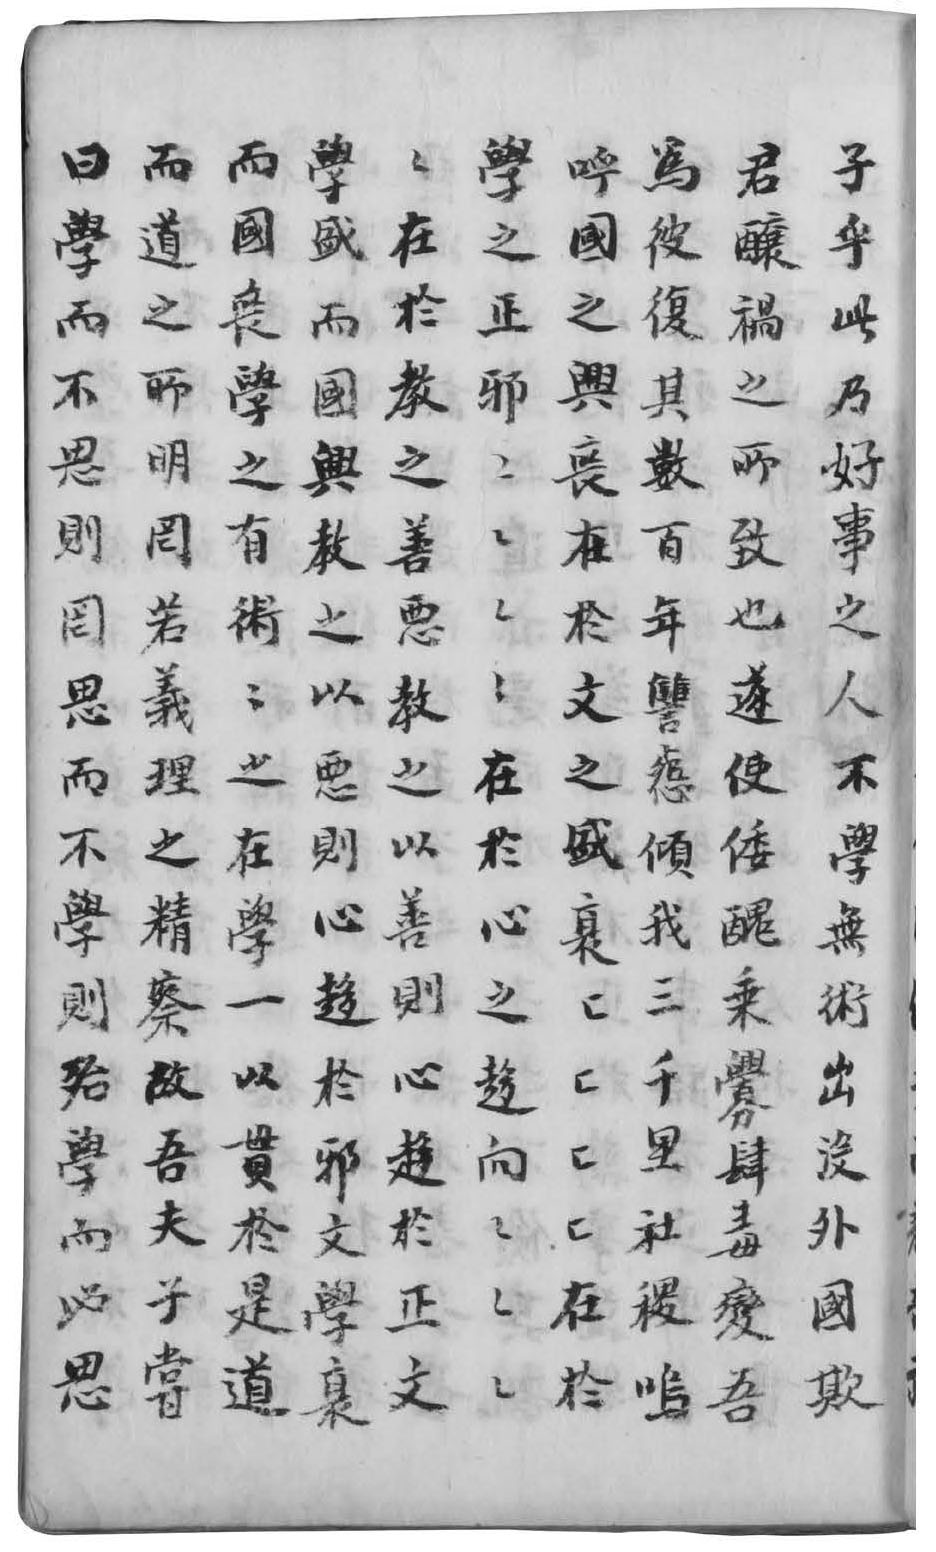 子乎此乃好事之人不學無術出沒外國欺
君釀禍之所致也遂使倭醜乘釁肆毒變吾
爲彼復其數百年讐怨傾我三千里社稷嗚
呼國之興喪在於文之盛衰〻〻〻〻在於
學之正邪〻〻〻〻在於心之趍向〻〻〻
〻在於教之善悪教之以善則心趍於正文
學盛而國興教之以悪則心趍於邪文學衰
而國喪學之有術〻之在學一以貫於是道
而道之所明罔若義理之精察故吾夫子嘗
曰學而不思則罔思而不學則殆學而必思